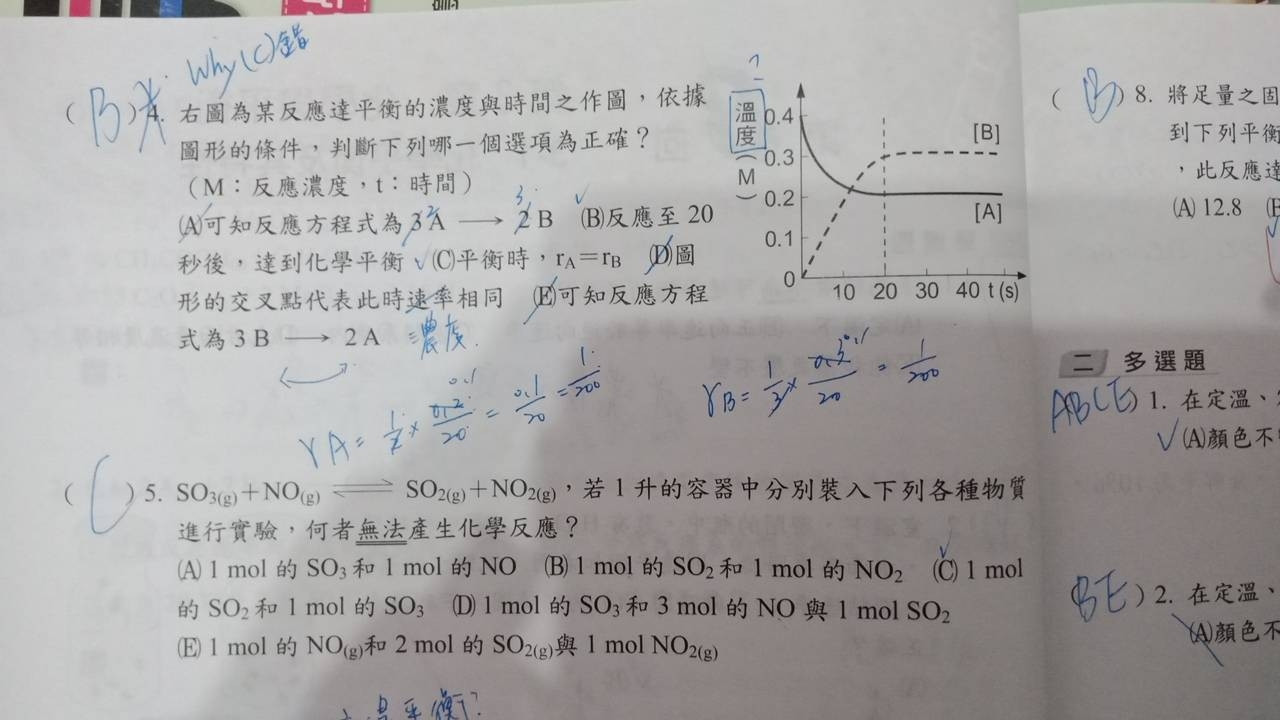 Why(C)錯
( B ) 4. 右圖為某反應達平衡的濃度與時間之作圖，依據
圖形的條件，判斷下列哪一個選項為正確？
（M：反應濃度，t：時間）
(A)可知反應方程式為 3 A ⟶ 2 B (B)反應至 20
2 3
秒後，達到化學平衡 (C)平衡時，rA＝rB (D)圖
形的交叉點代表此時速率相同 (E)可知反應方程
式為 3 B ⟶ 2 A
濃度.
?
溫度(M)
0.4
0.3
0.2
0.1
0
[B]
[A]
10 20 30 40 t (s)
γA = 1/2 × 0.2/20 = 0.1/20 = 1/200
0.1
γB = 1/3 × 0.3/20 = 1/200
0.1
( C ) 5. SO3(g)＋NO(g) ⇌ SO2(g)＋NO2(g)，若 1 升的容器中分別裝入下列各種物質
進行實驗，何者無法產生化學反應？
(A) 1 mol 的 SO3 和 1 mol 的 NO (B) 1 mol 的 SO2 和 1 mol 的 NO2 (C) 1 mol
的 SO2 和 1 mol 的 SO3 (D) 1 mol 的 SO3 和 3 mol 的 NO 與 1 mol SO2
(E) 1 mol 的 NO(g)和 2 mol 的 SO2(g)與 1 mol NO2(g)
平衡?
( B ) 8. 將足量之固
到下列平衡
，此反應達
(A) 12.8
二 多選題
ABCE ) 1. 在定溫、
(A)顏色不
( BE ) 2. 在定溫、
(A)顏色不